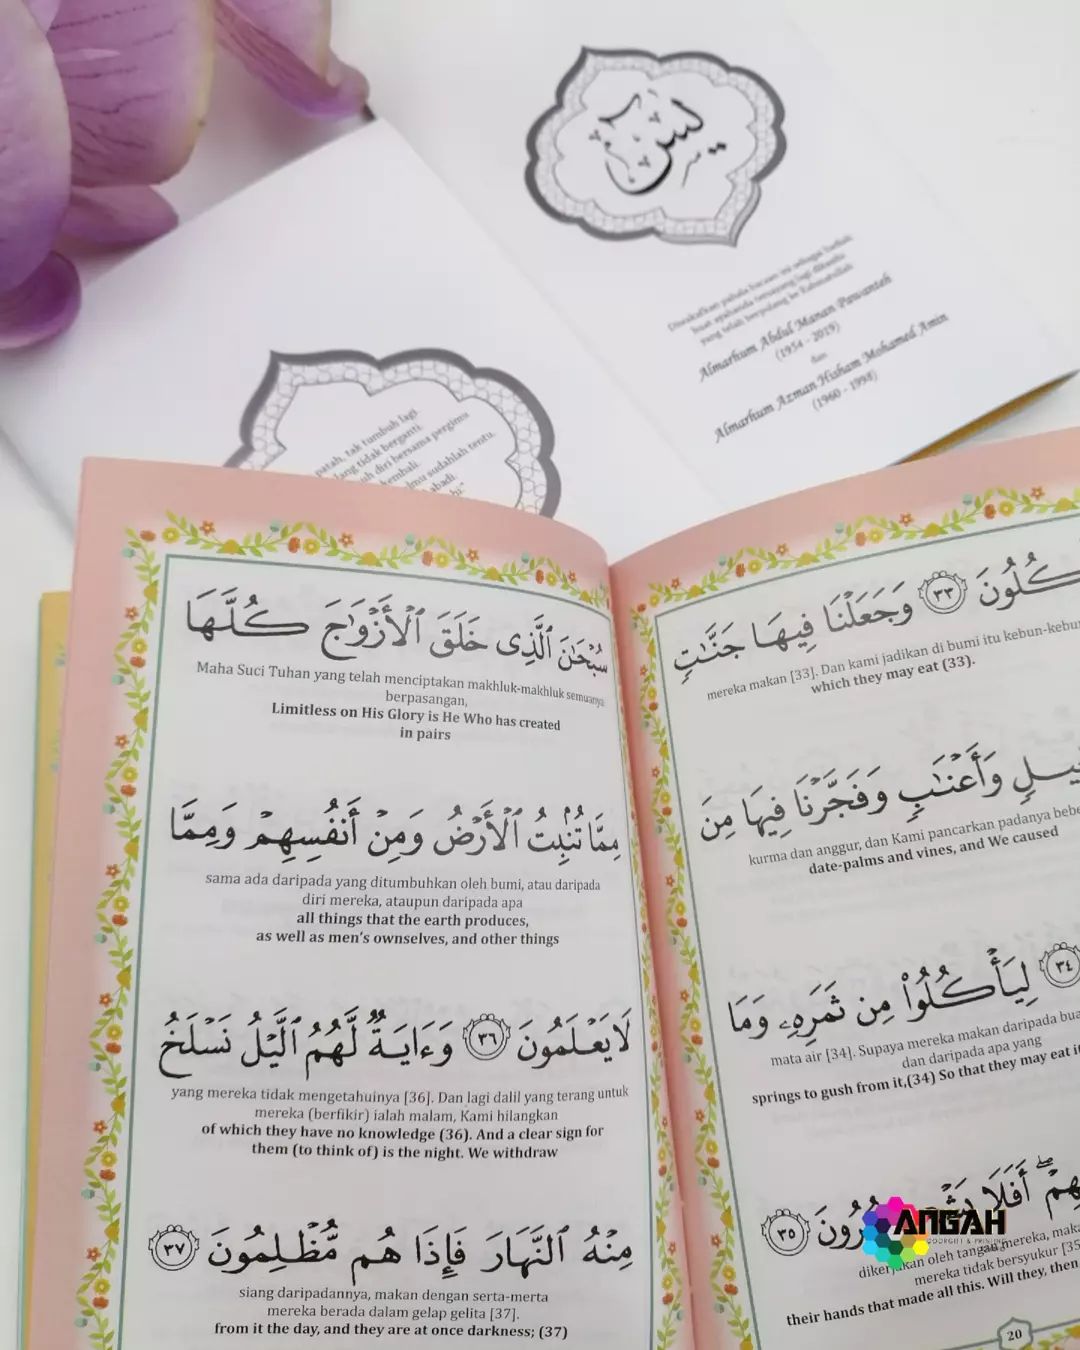 يس
Disedekahkan pahala bacaan ini sebagai hadiah
buat ayahanda tersayang lagi dikasihi
yang telah berpulang ke Rahmatullah
Almarhum Abdul Manan Pawanteh
(1954 - 2019)
dan
Almarhum Azman Hisham Mohamed Amin
(1960 - 1998)
patah, tak tumbuh lagi.
lang tidak berganti.
uh diri bersama pergimu
kembali.
lmu sudahlah tentu.
abadi.
كُلُونَ ٣٣ وَجَعَلْنَا فِيهَا جَنَّٰتٍ
mereka makan [33]. Dan kami jadikan di bumi itu kebun-kebun
which they may eat (33).
يلٍ وَأَعْنَٰبٍ وَفَجَّرْنَا فِيهَا مِنَ
kurma dan anggur, dan Kami pancarkan padanya bebe
date-palms and vines, and We caused
٣٤ لِيَأْكُلُوا۟ مِن ثَمَرِهِۦ وَمَا
mata air [34]. Supaya mereka makan daripada bua
dan daripada apa yang
springs to gush from it,(34) So that they may eat it
هِمْ ۖ أَفَلَا يَشْكُرُونَ ٣٥
dikerjakan oleh tangan mereka, maka
mereka tidak bersyukur [35
their hands that made all this. Will they, then
20
سُبْحَٰنَ ٱلَّذِى خَلَقَ ٱلْأَزْوَٰجَ كُلَّهَا
Maha Suci Tuhan yang telah menciptakan makhluk-makhluk semuanya
berpasangan,
Limitless on His Glory is He Who has created
in pairs
مِمَّا تُنۢبِتُ ٱلْأَرْضُ وَمِنْ أَنفُسِهِمْ وَمِمَّا
sama ada daripada yang ditumbuhkan oleh bumi, atau daripada
diri mereka, ataupun daripada apa
all things that the earth produces,
as well as men's ownselves, and other things
لَا يَعْلَمُونَ ٣٦ وَءَايَةٌ لَّهُمُ ٱلَّيْلُ نَسْلَخُ
yang mereka tidak mengetahuinya [36]. Dan lagi dalil yang terang untuk
mereka (berfikir) ialah malam, Kami hilangkan
of which they have no knowledge (36). And a clear sign for
them (to think of) is the night. We withdraw
مِنْهُ ٱلنَّهَارَ فَإِذَا هُم مُّظْلِمُونَ ٣٧
siang daripadannya, makan dengan serta-merta
mereka berada dalam gelap gelita [37].
from it the day, and they are at once darkness; (37)
ANGAH
DOORGIFT & PRINTING